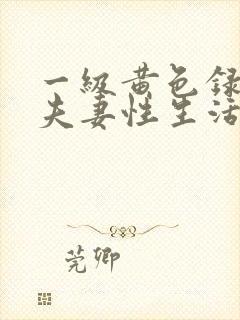 一级黄色录
夫妻性生活
莞卿